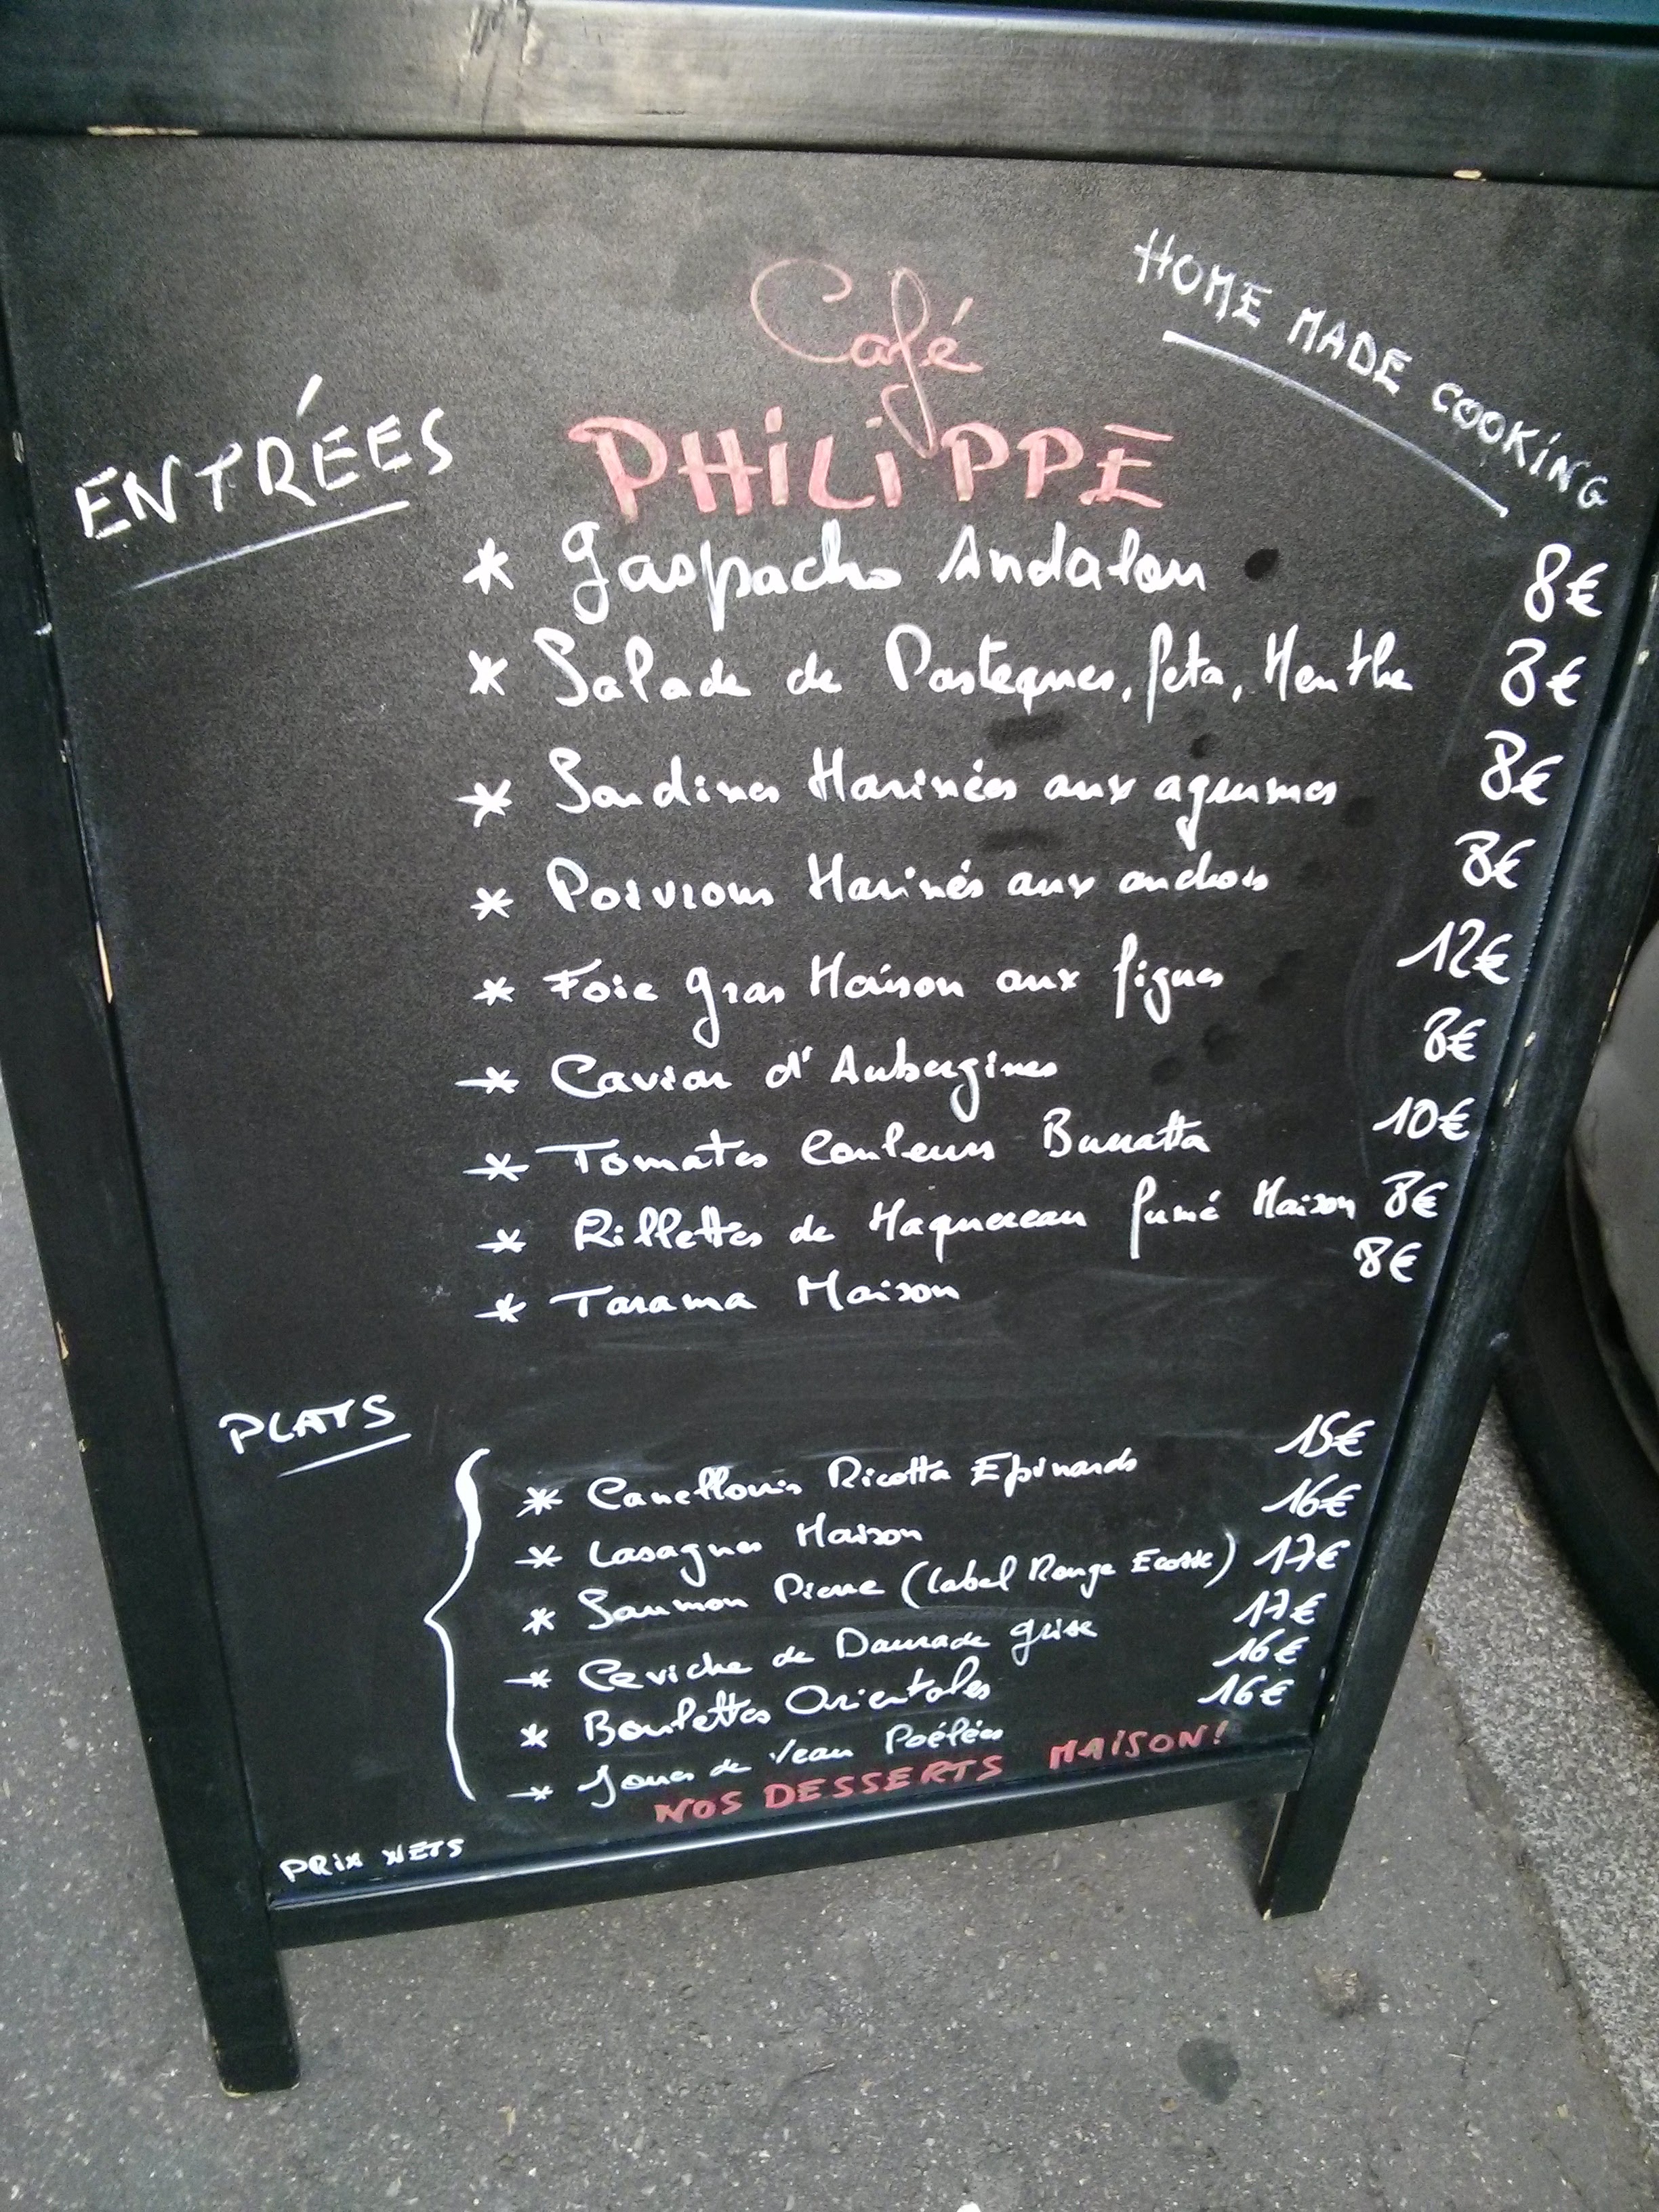 Café
PHiLiPPE
HOME MADE COOKiNG
ENTRÉES
* Gaspacho Andalou 8€
* Salade de Pasteques, feta, Menthe 8€
* Sardines Marinées aux agrumes 8€
* Poivrons Marinés aux anchois 8€
* Foie gras Maison aux figues 12€
* Caviar d'Aubergines 8€
* Tomates Couleurs Burratta 10€
* Rillettes de Maquereau fumé Maison 8€
* Tarama Maison 8€
PLATS
* Canellonis Ricotta Epinards 15€
* Lasagnes Maison 16€
* Saumon Pierre (Label Rouge Ecosse) 17€
* Ceviche de Daurade grise 17€
* Boulettes Orientales 16€
* Joues de Veau Poélées 16€
NOS DESSERTS MAiSON!
PRiX NETS